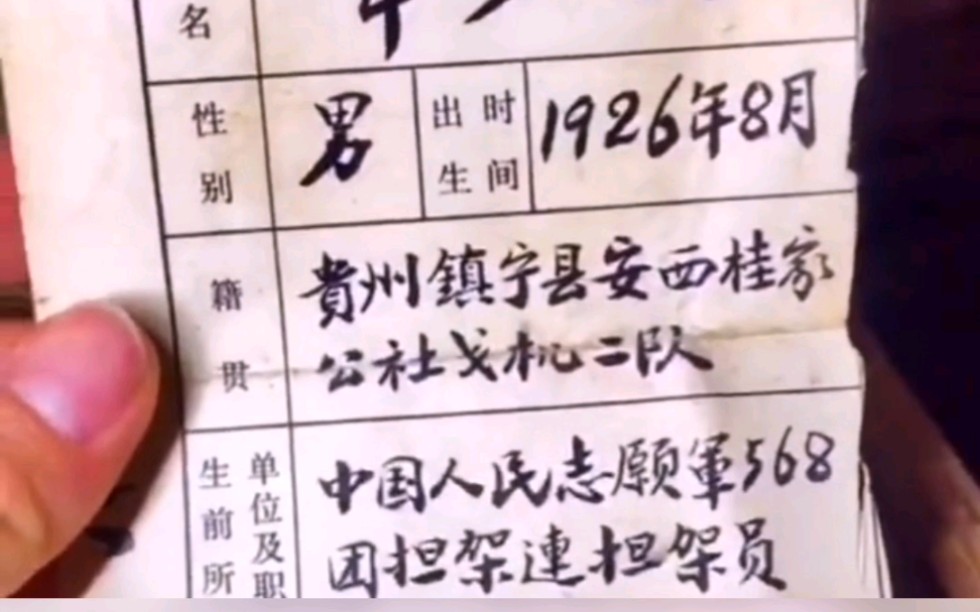 名
性别 男 出生时间 1926年8月
籍贯 貴州鎮宁县安西桂家
公社戈机二队
生前所 单位及职 中国人民志願軍568
团担架連担架员